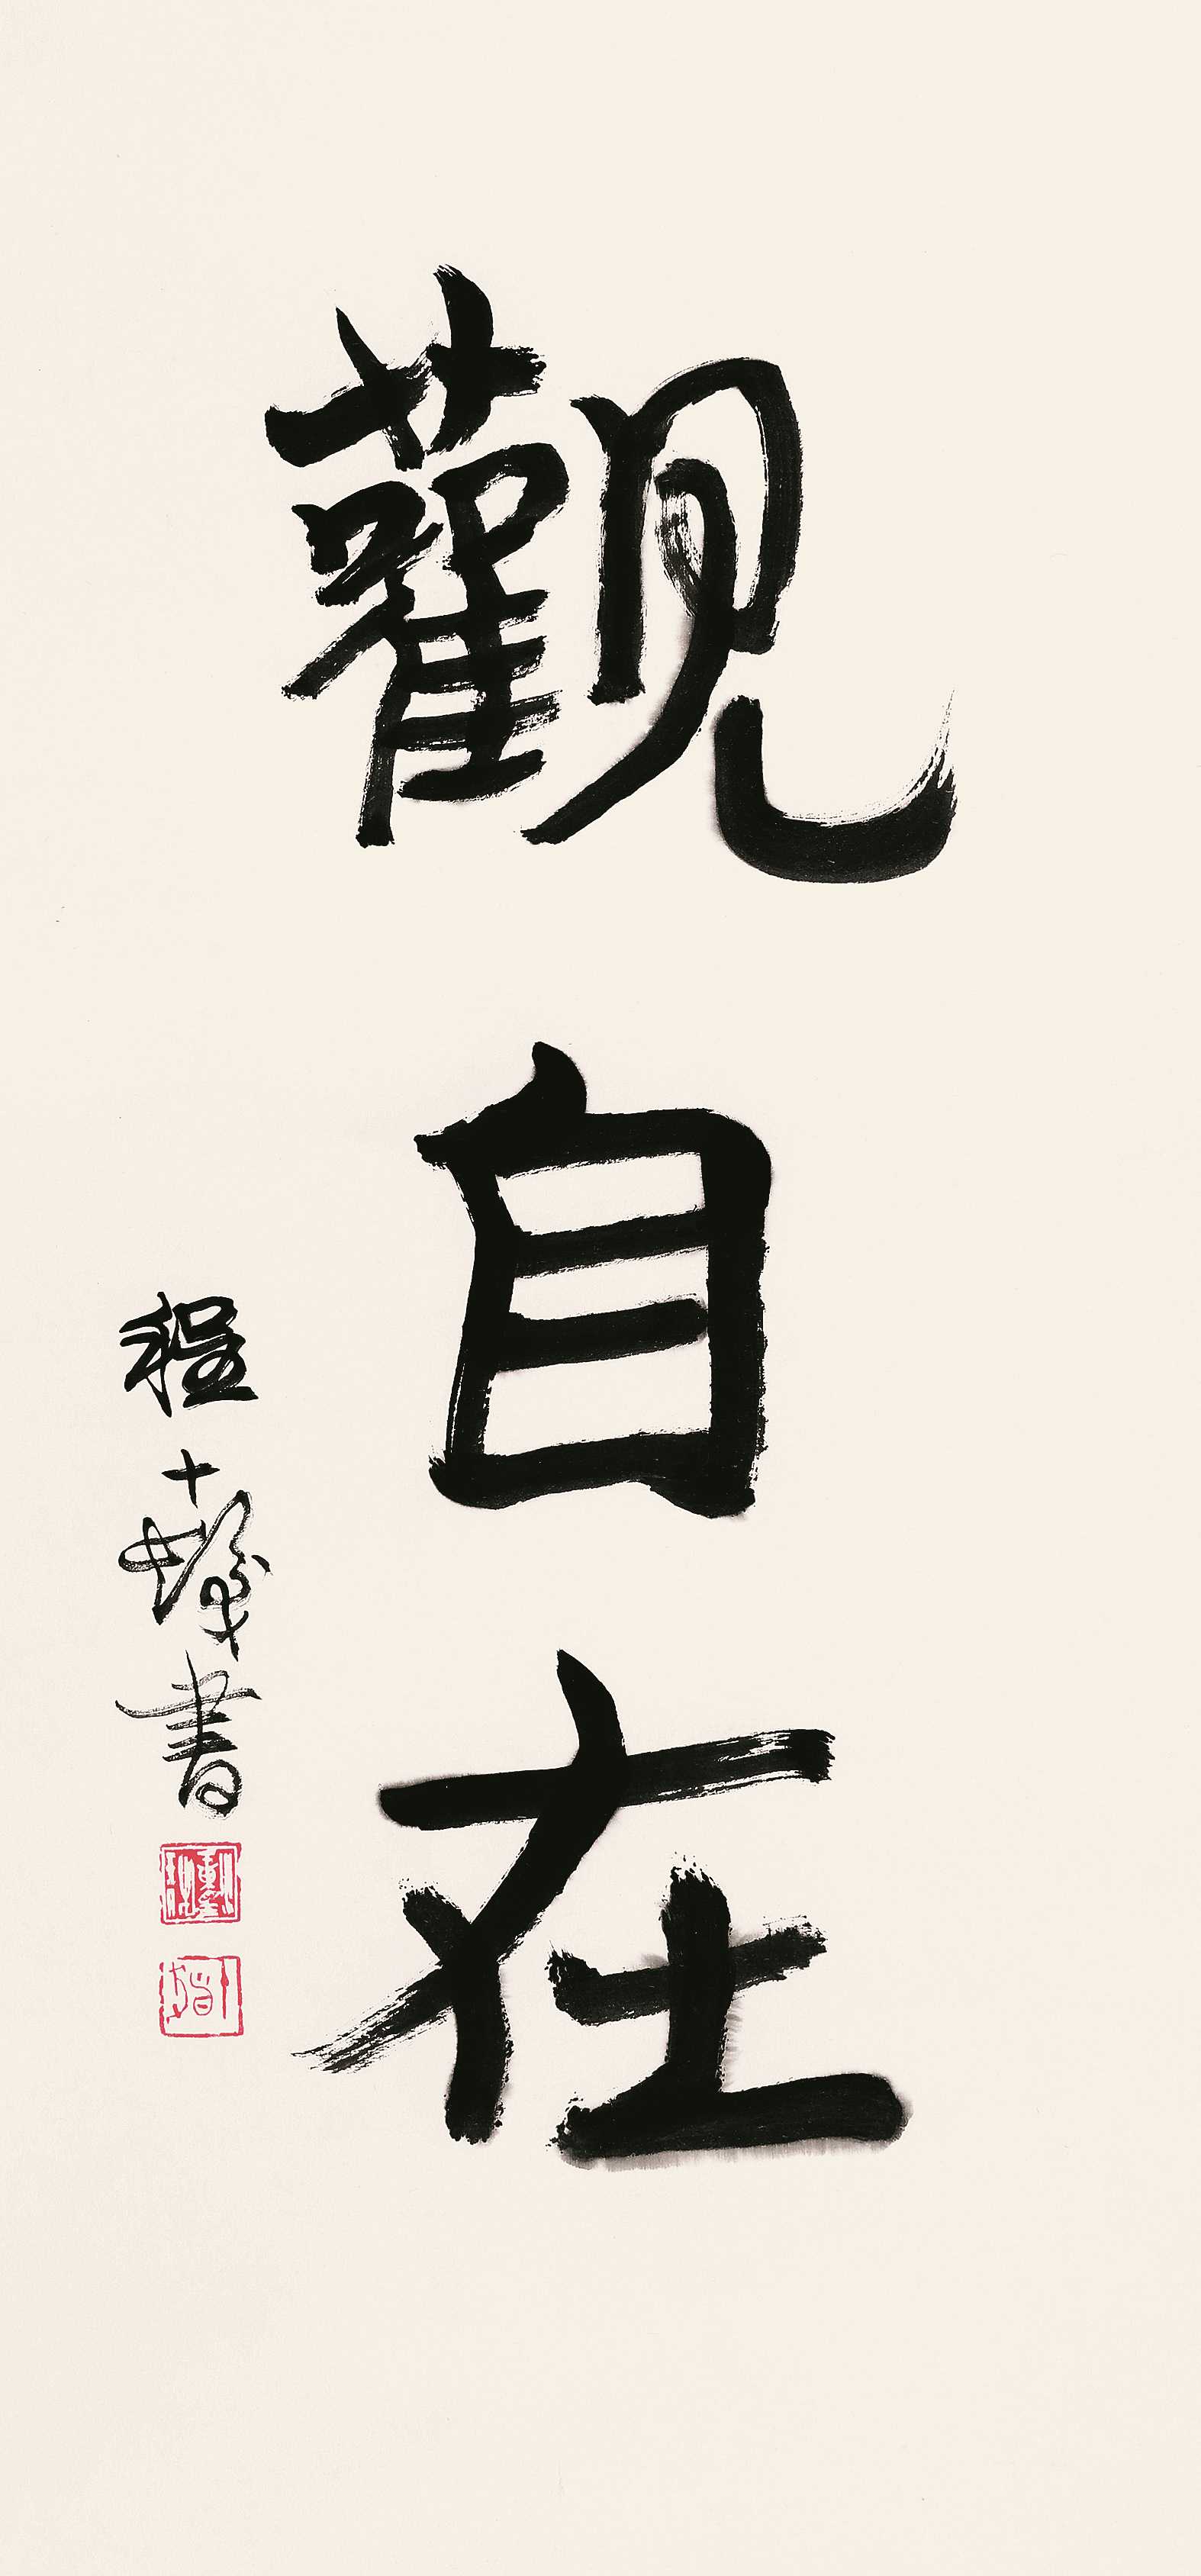 觀自在
程十髮書